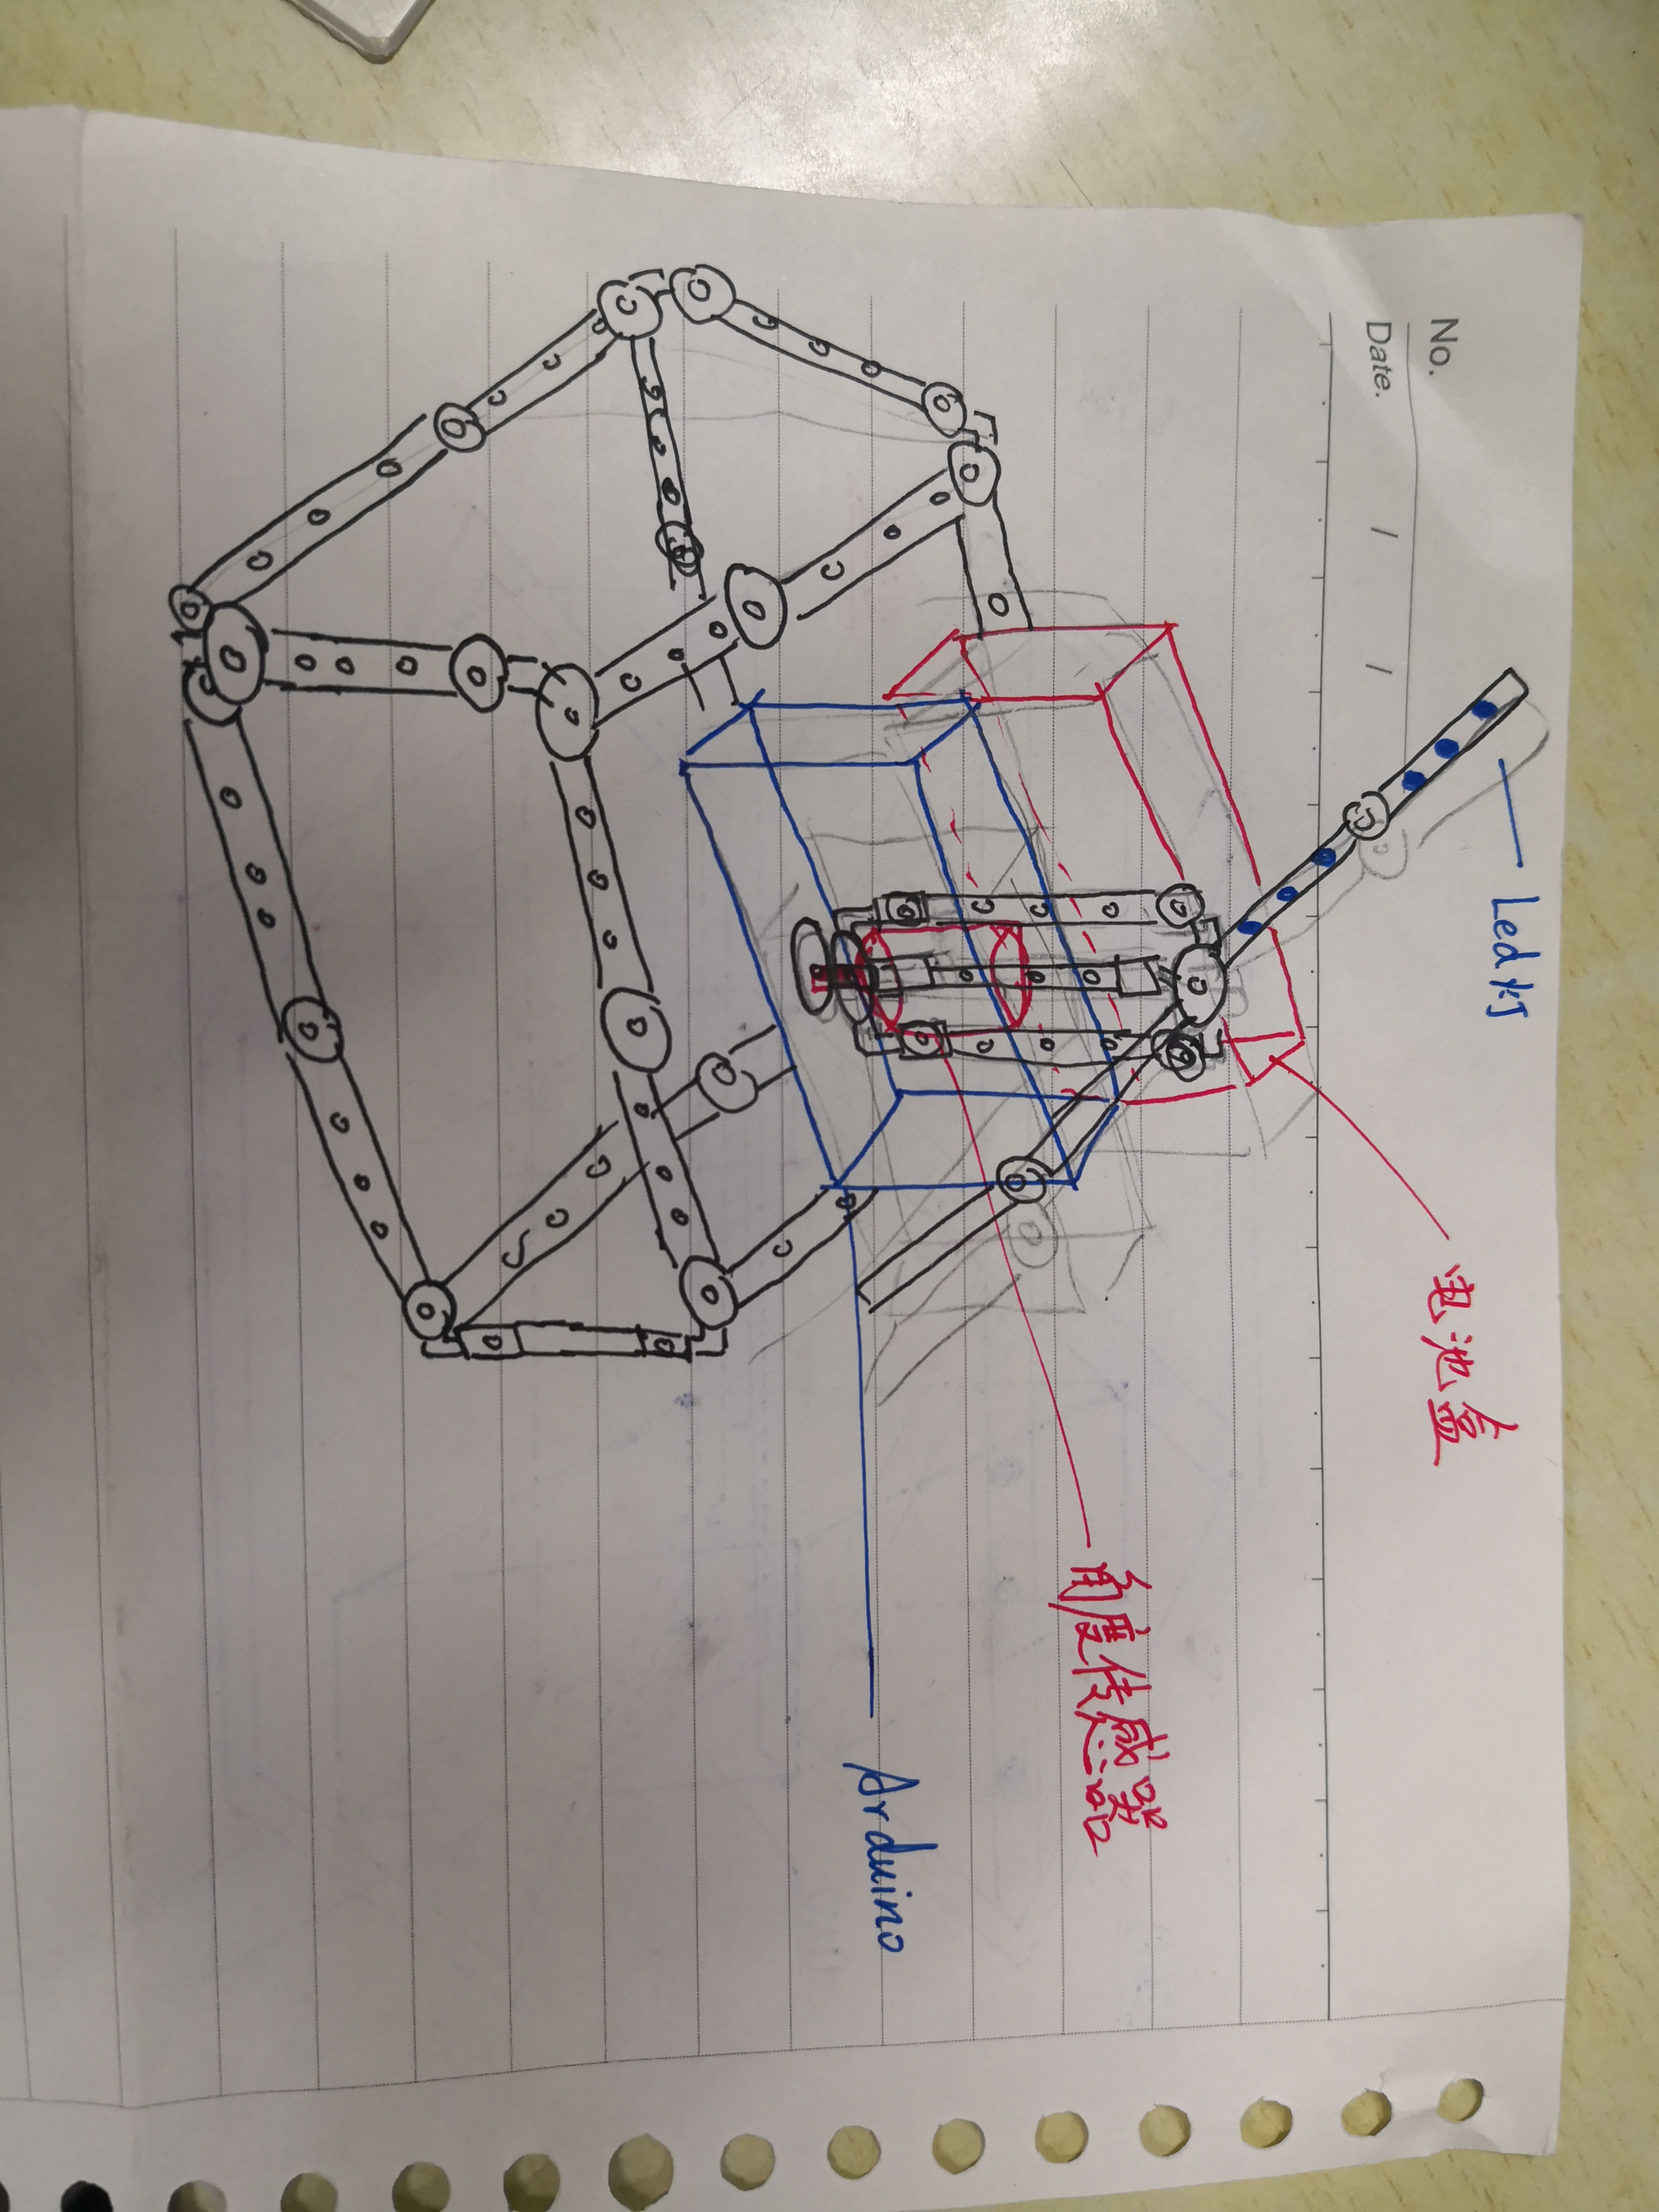 No.
Date.
Led灯
电池盒
角度传感器
Arduino